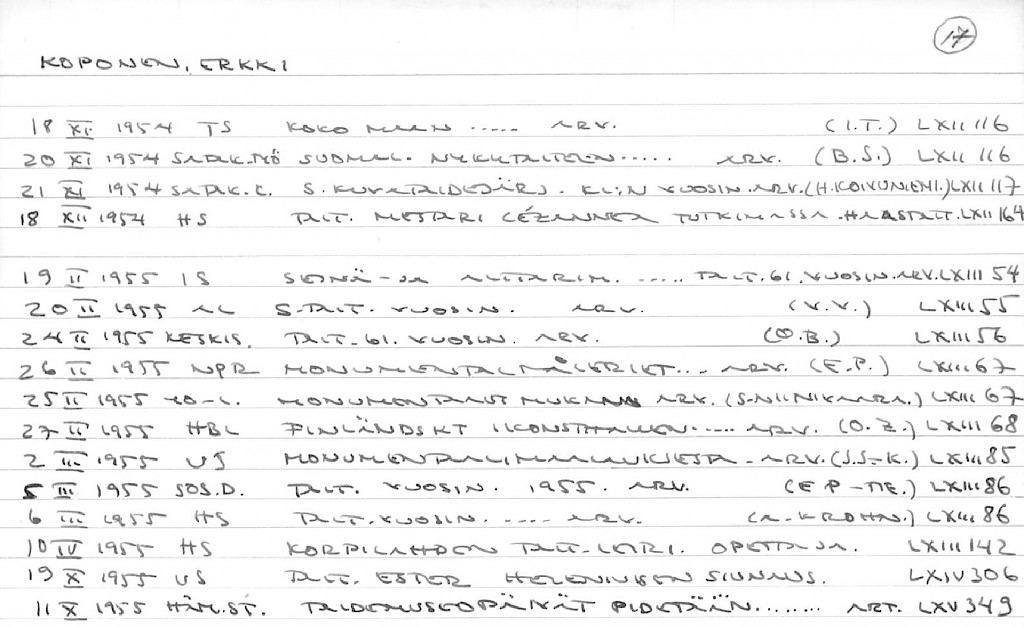 17
KOPONEN, ERKKI
18 XI 1954 TS KOKO MAAN ..... ARV. (I.T.) LXII 116
20 XI 1954 SATAK.TYÖ SUOMAL. NYKYTAITEEN ..... ARV. (B.S.) LXII 116
21 XI 1954 SATAK.K. S. KUVATAIDEJÄRJ. KL:N VUOSIN. ARV. (H.KOIVUNIEMI.) LXII 117
18 XII 1954 HS TAIT. MESTARI CÉZANNEA TUTKIMASSA. HAASTATT. LXII 164
19 II 1955 IS SEINÄ- JA ALTTARIM. ..... TAIT. 61. VUOSIN. ARV. LXIII 54
20 II 1955 AL S.TAIT. VUOSIN. ARV. (V.V.) LXIII 55
24 II 1955 KESKIS. TAIT. 61. VUOSIN. ARV. (O.B.) LXIII 56
26 II 1955 NPR MONUMENTALMÅLERIET... ARV. (E.P.) LXIII 67
25 II 1955 YO-L. MONUMENTAALIT MUKANA ARV. (S-NIINIVAARA.) LXIII 67
27 II 1955 HBL FINLÄNDSKT I KONSTHALLEN ..... ARV. (O.Z.) LXIII 68
2 III 1955 US MONUMENTAALIMAALAUKSESTA - ARV. (S.S-K.) LXIII 85
5 III 1955 SOS.D. TAIT. VUOSIN. 1955. ARV. (E P-TIE.) LXIII 86
6 III 1955 HS TAIT. VUOSIN. ..... ARV. (A-KROHN.) LXIII 86
10 IV 1955 HS KORPILAHDEN TAIT-LEIRI. OPETTAJA. LXIII 142
19 X 1955 US TAIT. ESTER HELENIUKSEN SIUNAUS. LXIV 306
11 X 1955 HÄM.ST. TAIDEMUSEOPÄIVÄT PIDETÄÄN ........ ART. LXV 349